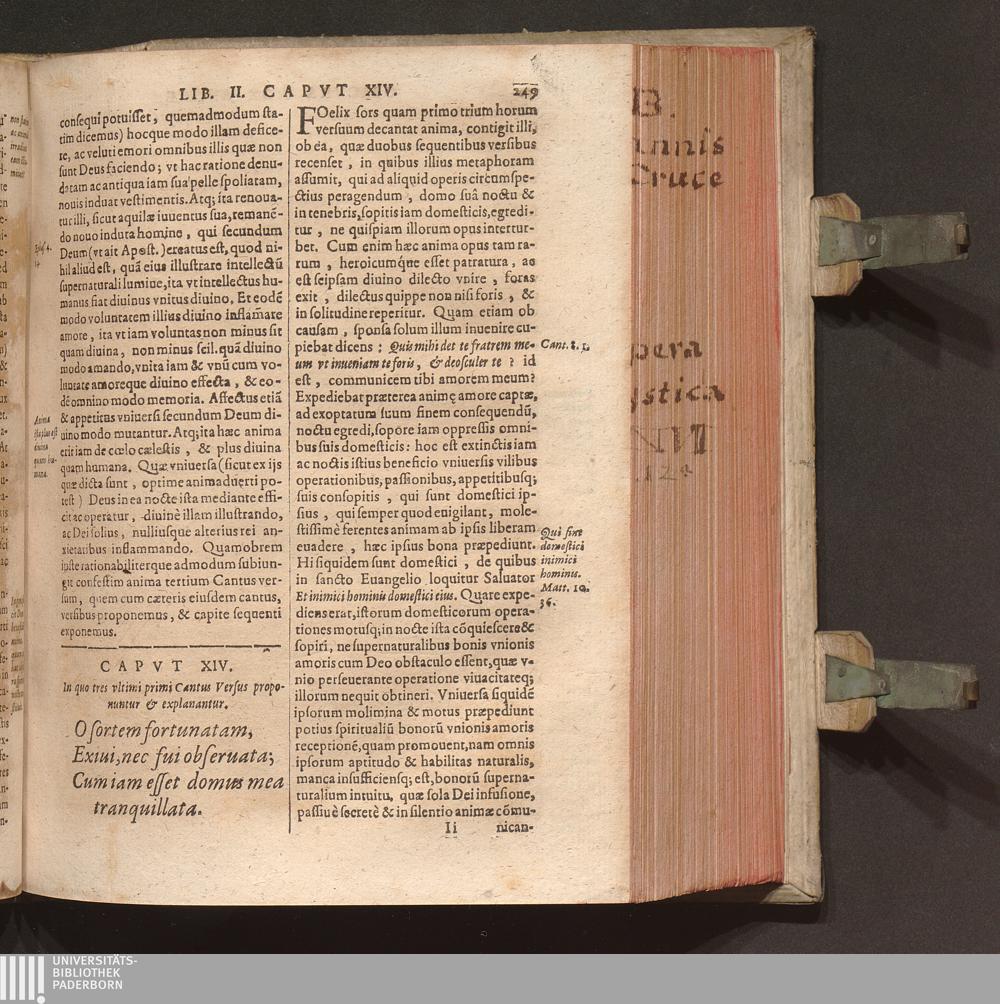 LIB. II. CAPVT XIV. 249
consequi potuisset, quemadmodum sta-
tim dicemus) hocque modo illam defice-
re, ac veluti emori omnibus illis quæ non
sunt Deus faciendo; vt hac ratione denu-
datam ac antiqua iam sua pelle spoliatam,
nouis induat vestimentis. Atq; ita renoua-
tur illi, sicut aquilæ iuuentus sua, remanẽ-
do nouo induta homine, qui secundum
Deum (vt ait Apost.) creatus est, quod ni-
hil aliud est, quã eius illustrare intellectũ
supernaturali lumine, ita vt intellectus hu-
manus fiat diuinus vnitus diuino. Et eodẽ
modo voluntatem illius diuino inflãmare
amore, ita vt iam voluntas non minus sit
quam diuina, non minus scil. quã diuino
modo amando, vnita iam & vnũ cum vo-
luntate amoreque diuino effecta, & eo-
dẽ omnino modo memoria. Affectus etiã
& appetitus vniuersi secundum Deum di-
uino modo mutantur. Atq; ita hæc anima
erit iam de cœlo cælestis, & plus diuina
quam humana. Quæ vniuersa (sicut ex ijs
quæ dicta sunt, optime animaduerti po-
test) Deus in ea nocte ista mediante effi-
cit ac operatur, diuinè illam illustrando,
ac Dei solius, nulliusque alterius rei an-
xietatibus inflammando. Quamobrem
iuste rationabiliterque admodum subiun-
git confestim anima tertium Cantus ver-
sum, quem cum cæteris eiusdem cantus,
versibus proponemus, & capite sequenti
exponemus.
Ephes. 4.
Anima
ista plus est
diuina
quam hu-
mana.
CAPVT XIV.
In quo tres vltimi primi Cantus Versus propo-
nuntur & explanantur.
O sortem fortunatam,
Exiui, nec fui obseruata;
Cum iam esset domus mea
tranquillata.
FOelix sors quam primo trium horum
versuum decantat anima, contigit illi,
ob ea, quæ duobus sequentibus versibus
recenset, in quibus illius metaphoram
assumit, qui ad aliquid operis circumspe-
ctius peragendum, domo suâ noctu &
in tenebris, sopitis iam domesticis, egredi-
tur, ne quispiam illorum opus intertur-
bet. Cum enim hæc anima opus tam ra-
rum, heroicumque esset patratura, ac
est seipsam diuino dilecto vnire, foras
exit, dilectus quippe non nisi foris, &
in solitudine reperitur. Quam etiam ob
causam, sponsa solum illum inuenire cu-
piebat dicens: Quis mihi det te fratrem me-
um vt inueniam te foris, & deosculer te? id
est, communicem tibi amorem meum?
Expediebat præterea animę amore captæ,
ad exoptatum suum finem consequendũ,
noctu egredi, sopore iam oppressis omni-
bus suis domesticis: hoc est extinctis iam
ac noctis istius beneficio vniuersis vilibus
operationibus, passionibus, appetitibusq;
suis consopitis, qui sunt domestici ip-
sius, qui semper quod euigilant, mole-
stissimè ferentes animam ab ipsis liberam
euadere, hæc ipsius bona præpediunt.
Hi siquidem sunt domestici, de quibus
in sancto Euangelio loquitur Saluator
Et inimici hominis domestici eius. Quare expe-
diens erat, istorum domesticorum opera-
tiones motusq; in nocte ista cõquiescere &
sopiri, ne supernaturalibus bonis vnionis
amoris cum Deo obstaculo essent, quæ v-
nio perseuerante operatione viuacitateq;
illorum nequit obtineri. Vniuersa siquidẽ
ipsorum molimina & motus præpediunt
potius spiritualiũ bonorũ vnionis amoris
receptionẽ, quam promouent, nam omnis
ipsorum aptitudo & habilitas naturalis,
manca insufficiensq; est, bonorũ superna-
turalium intuitu, quæ sola Dei infusione,
passiuè secretè & in silentio animæ cõmu-
Ii nican-
Cant. 8. 1.
Qui sint
domestici
inimici
hominis.
Matt. 10.
36.
B.
annis
Cruce
pera
ystica
UNIVERSITÄTS-
BIBLIOTHEK
PADERBORN